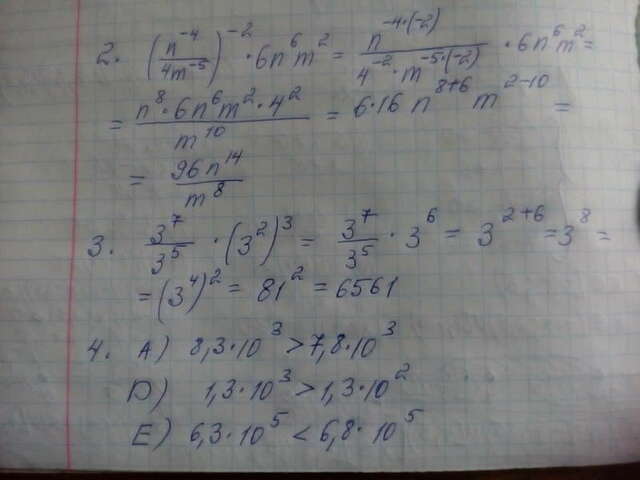 2. (n⁻⁴/4m⁻⁵)⁻² · 6n⁶m² = n⁻⁴·⁽⁻²⁾/4⁻² · m⁻⁵·⁽⁻²⁾ · 6n⁶m² =
= n⁸ · 6n⁶m² · 4²/m¹⁰ = 6·16 n⁸⁺⁶ m²⁻¹⁰ =
= 96n¹⁴/m⁸
3. 3⁷/3⁵ · (3²)³ = 3⁷/3⁵ · 3⁶ = 3²⁺⁶ = 3⁸ =
= (3⁴)² = 81² = 6561
4. A) 8,3·10³ > 7,8·10³
D) 1,3·10³ > 1,3·10²
E) 6,3·10⁵ < 6,8·10⁵